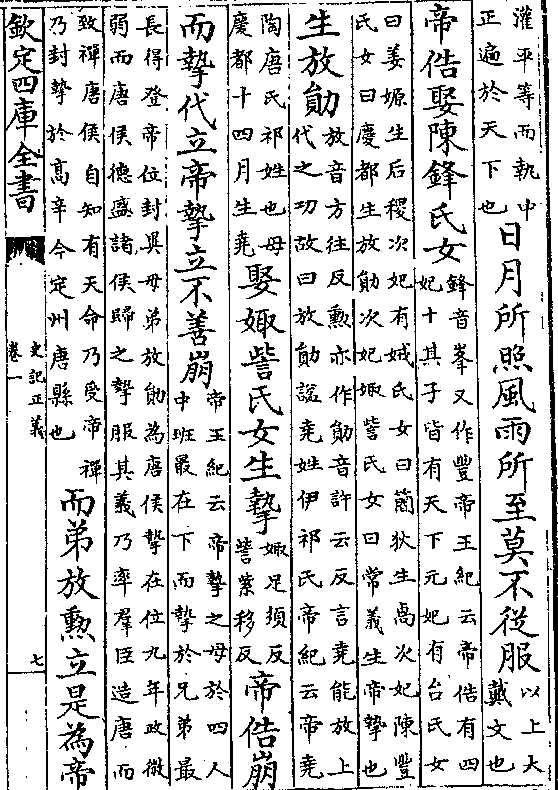 溉平等而執中
正遍於天下也
日月所照風雨所至莫不從服
以上大
戴文也
帝俈娶陳鋒氏女
鋒音峯又作豐帝王紀云帝俈有四
妃十其子皆有天下元妃有台氏女
曰姜嫄生后稷次妃有娀氏女曰簡狄生卨次妃陳豐
氏女曰慶都生放勛次妃娵訾氏女曰常義生帝摯也
生放勛
放音方往反勲亦作勛音許云反言堯能放上
代之功故曰放勛諡堯姓伊祁氏帝紀云帝堯
陶唐氏祁姓也母
慶都十四月生堯
娶娵訾氏女生摯
娵足須反
訾紫移反
帝俈崩
而摯代立帝摯立不善崩
帝王紀云帝摯之母於四人
中班最在下而摯於兄弟最
長得登帝位封異母弟放勛為唐侯摯在位九年政微
弱而唐侯德盛諸侯歸之摯服其義乃率羣臣造唐而
致禪唐侯自知有天命乃受帝禪
乃封摯於髙辛今定州唐縣也
而弟放勲立是為帝
欽定四庫全書
史記正義
卷一
七